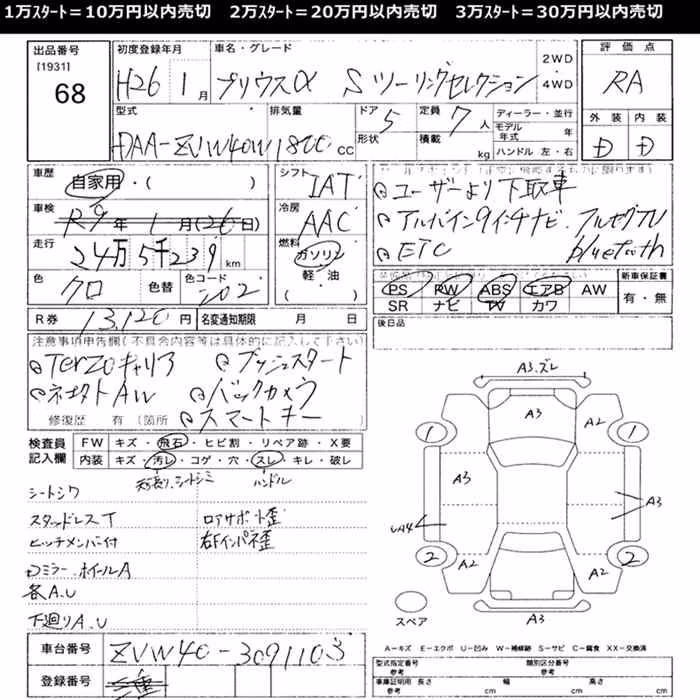 1万スタート＝10万円以内売切　2万スタート＝20万円以内売切　3万スタート＝30万円以内売切
出品番号
[1931]
68
初度登録年月
H26 1月
車名・グレード
プリウスα Sツーリングセレクション
2WD
4WD
評価点
RA
型式
DAA-ZVW40W
排気量
1800cc
ドア 5
形状
定員 7人
積載 kg
ディーラー・並行
モデル年式 年
ハンドル 左・右
外装 内装
D D
車歴
自家用・( )
シフト
IAT
車検
R9年 1月(26日)
冷房
AAC
走行
24万5千239km
燃料
ガソリン
軽・油
( )
色
クロ
色替
色コード
202
R券 13,120円
名変通知期限 月 日
ユーザーより下取車
アルパイン9インチナビ. フルセグTV
ETC bluetooth
PS PW ABS エアB AW
SR ナビ TV カワ
新車保証書
有・無
後日品
注意事項申告欄(不具合内容等は具体的に記入して下さい)
Terzoキャリア プッシュスタート
ネオクトAW バックカメラ
修復歴 有 (箇所 スマートキー
検査員記入欄
FW キズ・飛石・ヒビ割・リペア跡・X要
内装 キズ・汚レ・コゲ・穴・スレ・キレ・破レ
天張り、シートシミ ハンドル
シートシワ
スタッドレスT ロアサポート歪
ヒッチメンバー付 右Fインパネ歪
Dミラー.ホイールA
各A.U
下廻りA.U
A3.ズレ
A3
A2
1
1
A3
A3
UA4
2
2
A2
A2
A3
スペア
A－キズ E－エクボ U－凹み W－補修跡 S－サビ C－腐食 XX－交換済
車台番号
ZVW40-3091103
登録番号
型式指定番号 類別区分番号
車庫証明用 長さ cm 幅 cm 高さ cm